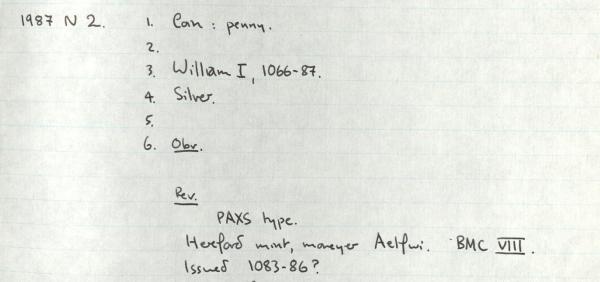 1987 N 2. 1. Coin : penny.
2.
3. William I, 1066-87.
4. Silver.
5.
6. Obv.
Rev.
PAXS type.
Hereford mint, moneyer Aelfwi. BMC VIII.
Issued 1083-86?